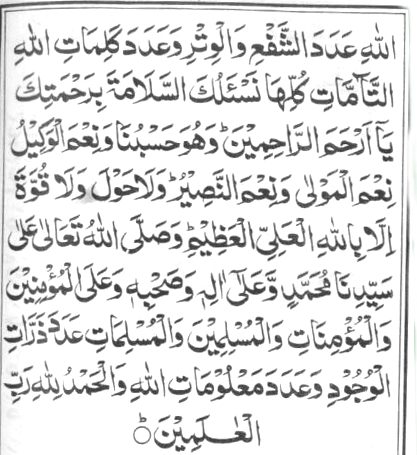 اللهِ عَدَدَ الشَّفْعِ وَالْوِتْرِ وَعَدَدَ كَلِمَاتِ اللهِ
التَّآمَّاتِ كُلِّهَا نَسْئَلُكَ السَّلَامَةَ بِرَحْمَتِكَ
يَآ اَرْحَمَ الرَّاحِمِيْنَ ؕ وَهُوَ حَسْبُنَا وَنِعْمَ الْوَكِيْلُ
نِعْمَ الْمَوْلٰى وَنِعْمَ النَّصِيْرُ ؕ وَلَا حَوْلَ وَلَا قُوَّةَ
اِلَّا بِاللهِ الْعَلِيِّ الْعَظِيْمِ ؕ وَصَلَّى اللهُ تَعَالٰى عَلٰى
سَيِّدِنَا مُحَمَّدٍ وَّعَلٰٓى اٰلِهٖ وَصَحْبِهٖ وَعَلَى الْمُؤْمِنِيْنَ
وَالْمُؤْمِنَاتِ وَالْمُسْلِمِيْنَ وَالْمُسْلِمَاتِ عَدَدَ ذَرَّاتِ
الْوُجُوْدِ وَعَدَدَ مَعْلُوْمَاتِ اللهِ وَالْحَمْدُ لِلّٰهِ رَبِّ
الْعٰلَمِيْنَ ؕ